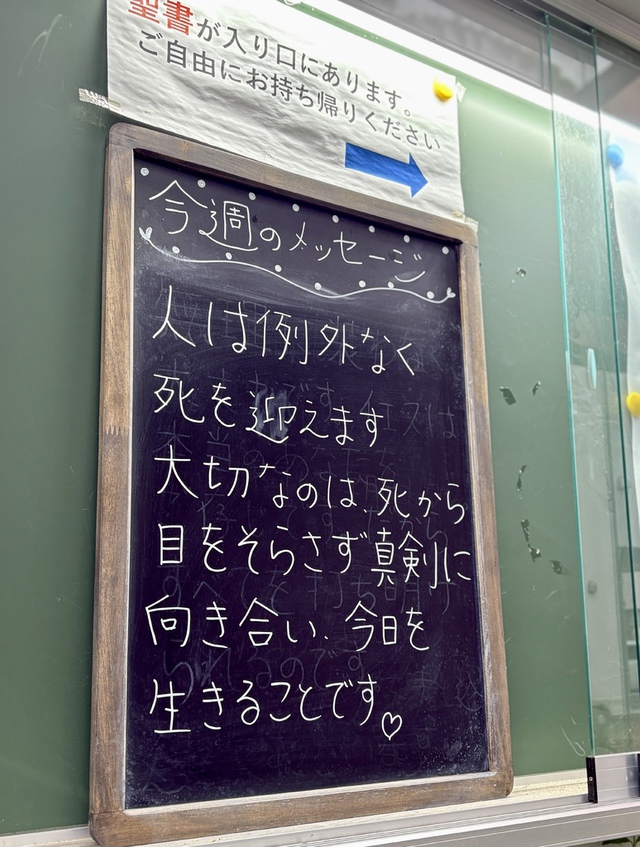 聖書が入り口にあります。
ご自由にお持ち帰りください
今週のメッセージ
人は例外なく
死を迎えます
大切なのは、死から
目をそらさず真剣に
向き合い、今日を
生きることです♡